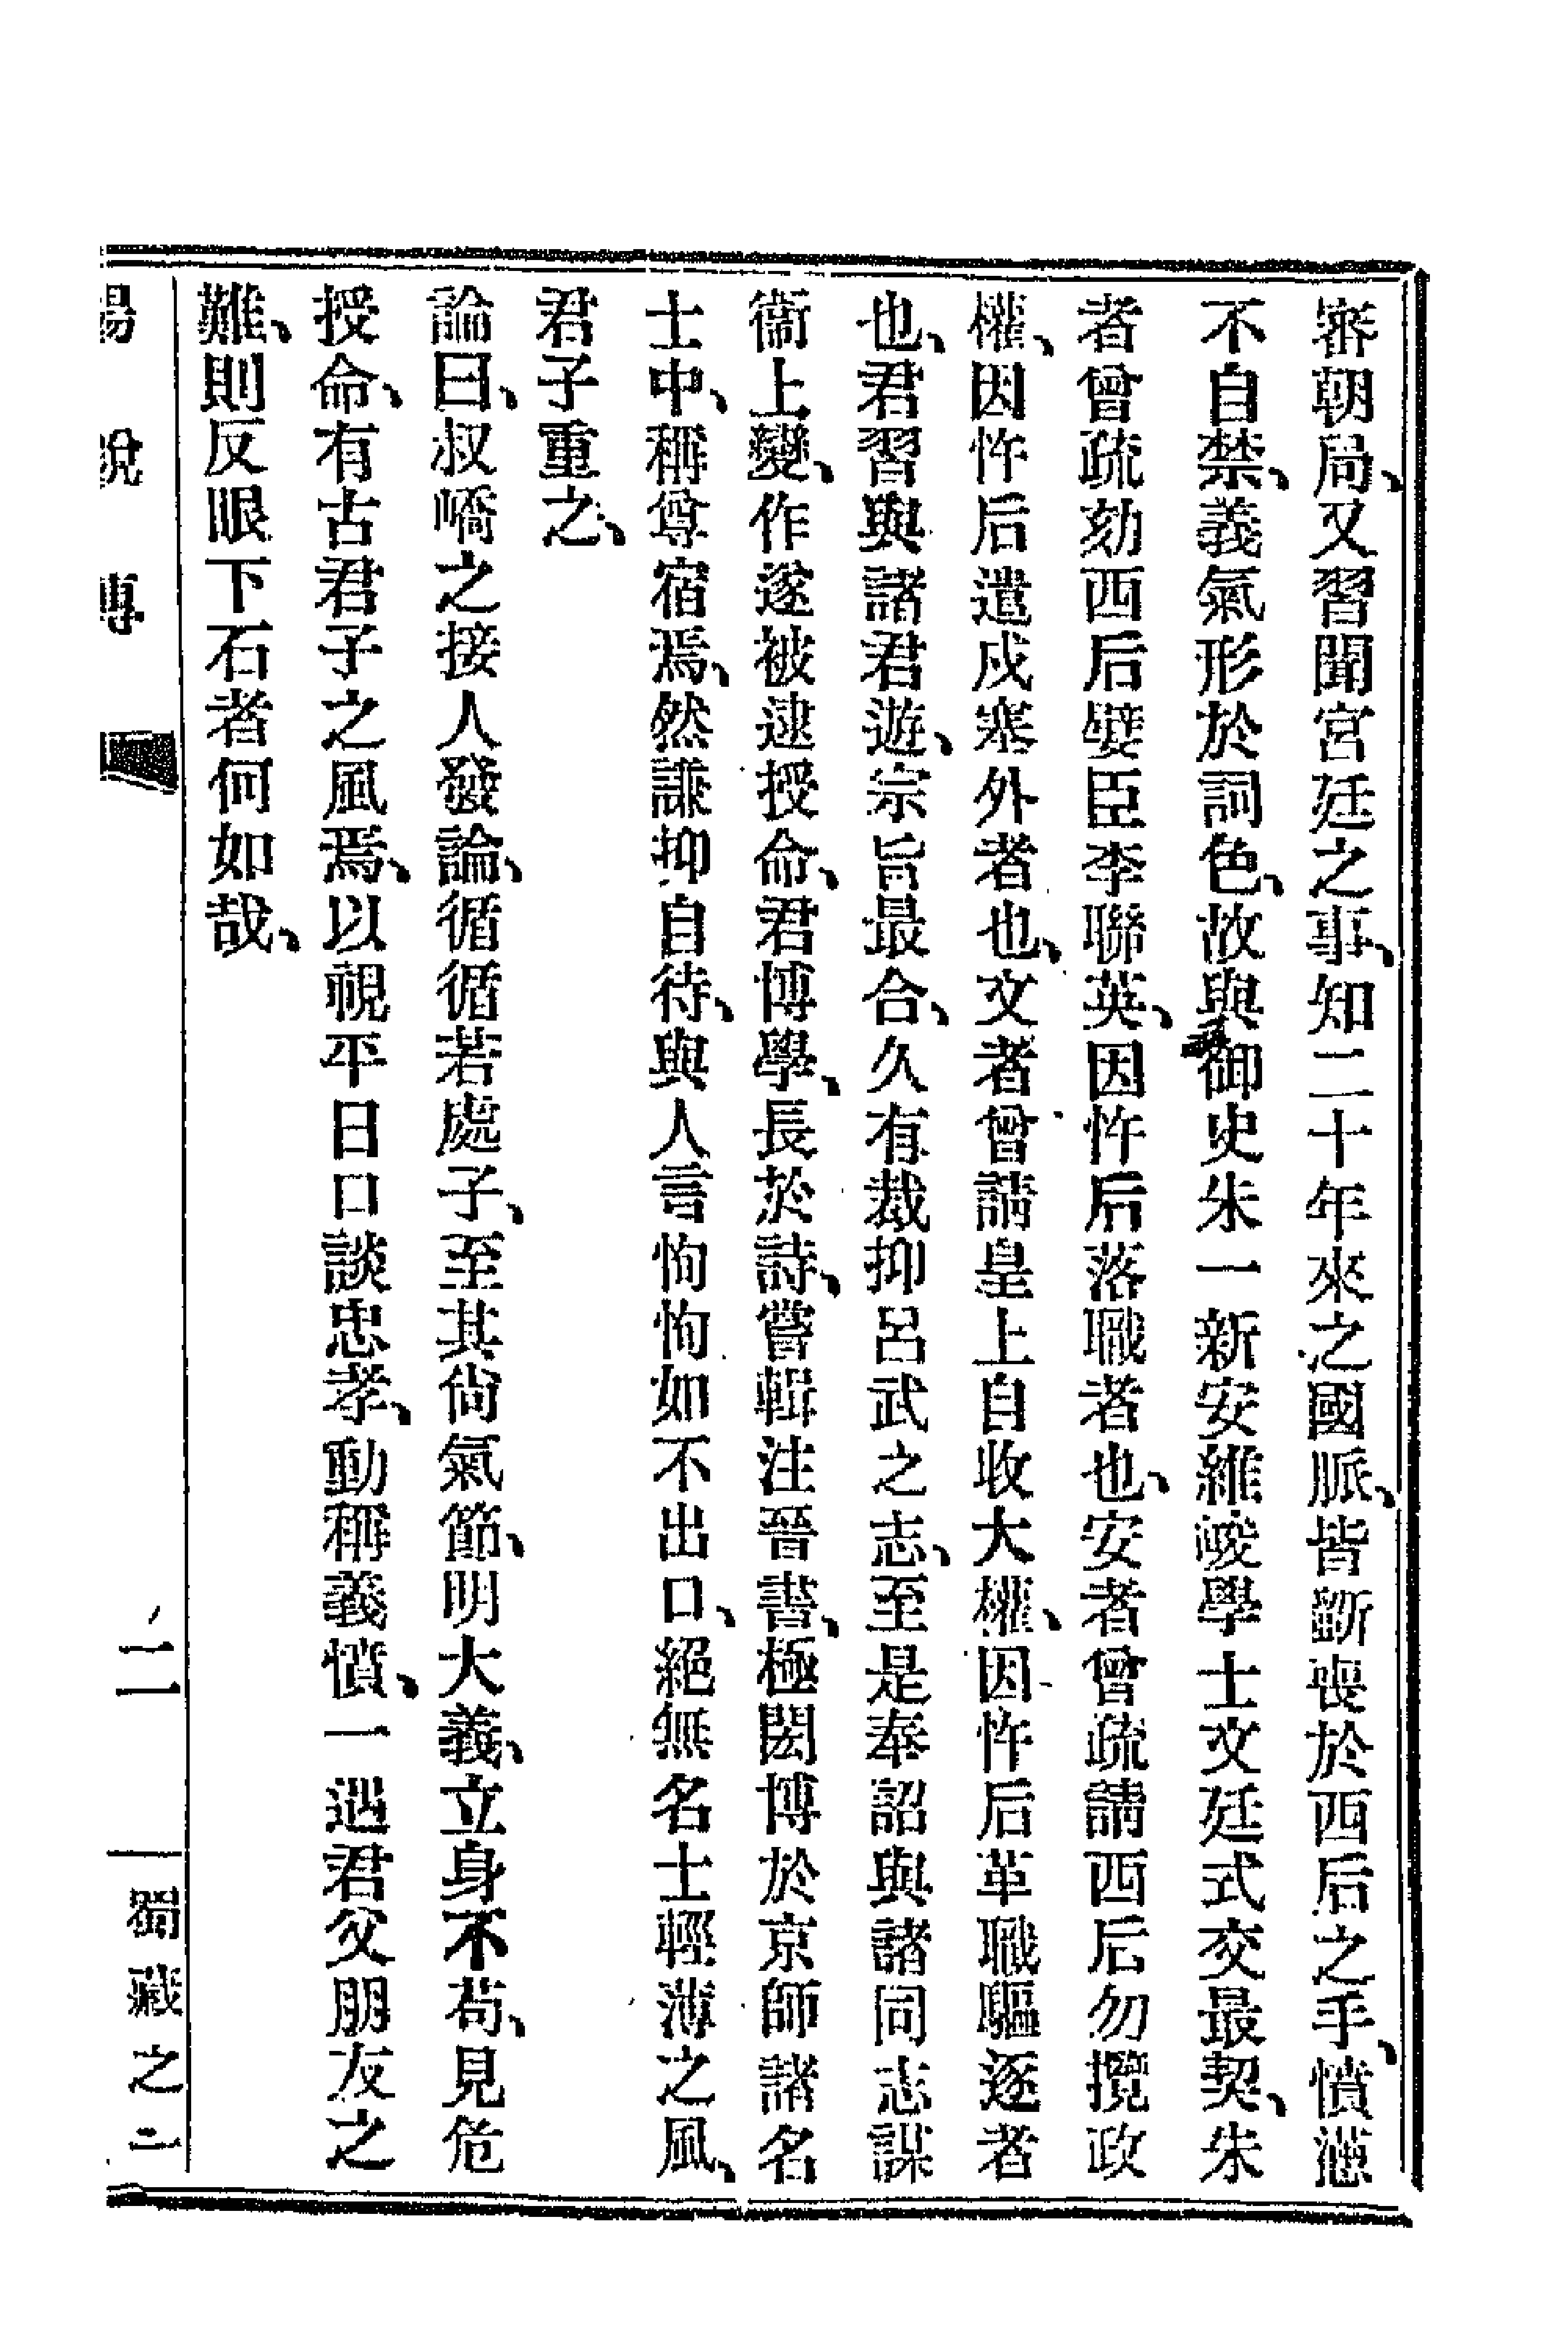 審朝局、又習聞宮廷之事、知二十年來之國脈、皆斷喪於西后之手、憤懣
不自禁、義氣形於詞色、故與御史朱一新安維峻學士文廷式交最契、朱
者曾疏劾西后嬖臣李聯英、因忤后落職者也、安者曾疏請西后勿攬政
權、因忤后遣戍塞外者也、文者曾請皇上自收大權、因忤后革職驅逐者
也、君習與諸君遊、宗旨最合、久有裁抑呂武之志、至是奉詔與諸同志謀
衞上變、作遂被逮授命、君博學、長於詩、嘗輯注晉書、極閎博於京師諸名
士中、稱尊宿焉、然謙抑自待、與人言恂恂如不出口、絕無名士輕薄之風、
君子重之、
論曰、叔嶠之接人發論、循循若處子、至其尙氣節、明大義、立身不苟、見危
授命、有古君子之風焉、以視平日口談忠孝、動稱義憤、一遇君父朋友之
難、則反眼下石者何如哉、
楊銳傳 二 蜀藏之二